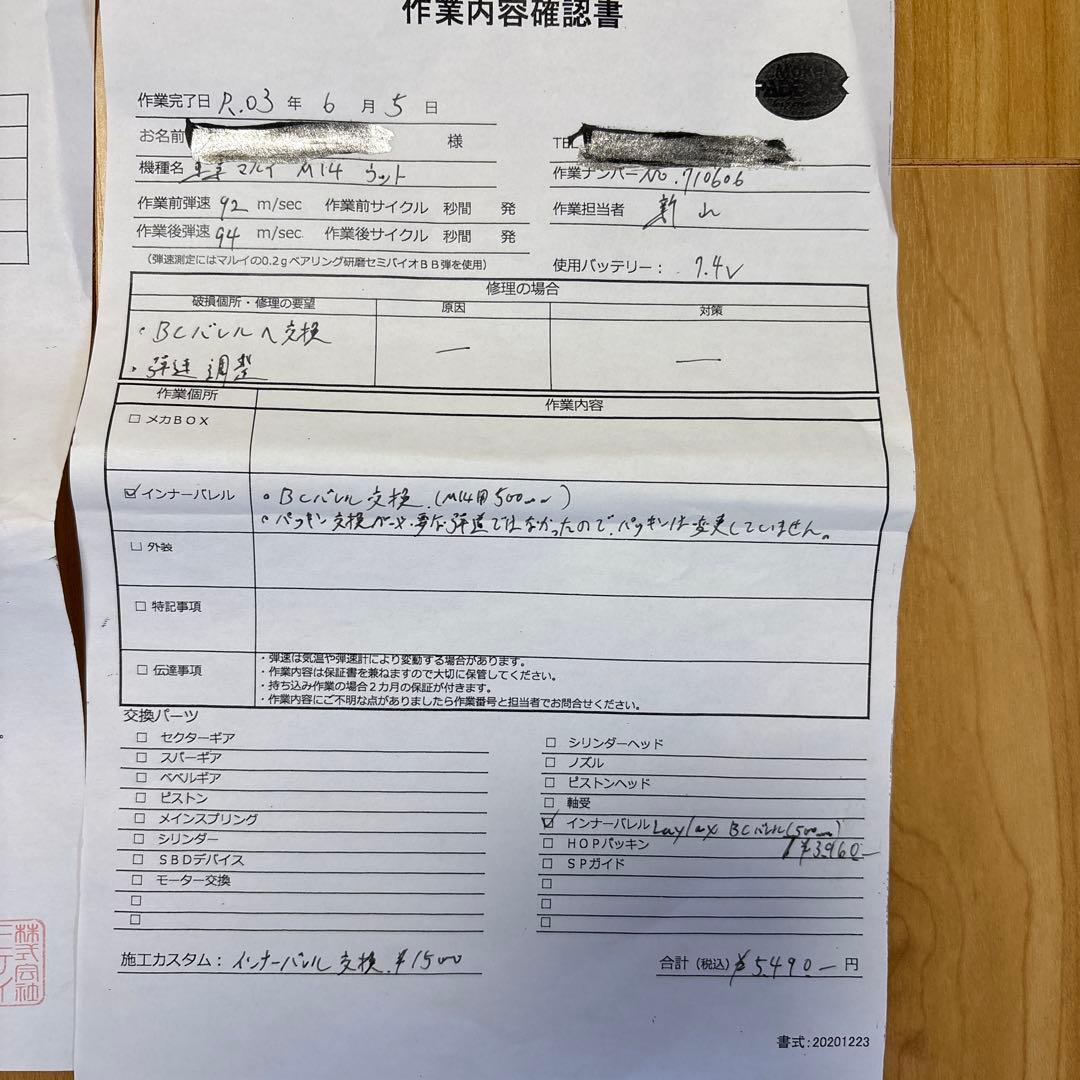 作業内容確認書
作業完了日 R.03 年 6 月 5 日
お名前 様
TEL
機種名 東京マルイ M14 ウッド
作業ナンバー No.710606
作業前弾速 92 m/sec 作業前サイクル 秒間 発
作業担当者 新山
作業後弾速 94 m/sec 作業後サイクル 秒間 発
(弾速測定にはマルイの0.2gベアリング研磨セミバイオBB弾を使用)
使用バッテリー: 7.4V
修理の場合
破損個所・修理の要望 原因 対策
・BCバレルへ交換
・弾速調整
作業個所 作業内容
□ メカBOX
☑ インナーバレル
・BCバレル交換.(M14用500mm)
・パッキン交換が必要な弾道ではなかったので、パッキンは変更していません。
□ 外装
□ 特記事項
□ 伝達事項
・弾速は気温や弾速計により変動する場合があります。
・作業内容は保証書を兼ねますので大切に保管してください。
・持ち込み作業の場合2カ月の保証が付きます。
・作業内容にご不明な点がありましたら作業番号と担当者でお問合せください。
交換パーツ
□ セクターギア
□ スパーギア
□ ベベルギア
□ ピストン
□ メインスプリング
□ シリンダー
□ SBDデバイス
□ モーター交換
□ シリンダーヘッド
□ ノズル
□ ピストンヘッド
□ 軸受
☑ インナーバレル Laylax BCバレル(500mm)
¥3,960-
□ HOPパッキン
□ SPガイド
施工カスタム: インナーバレル交換 ¥1500
合計(税込) ¥5,490- 円
書式:20201223
株式会社